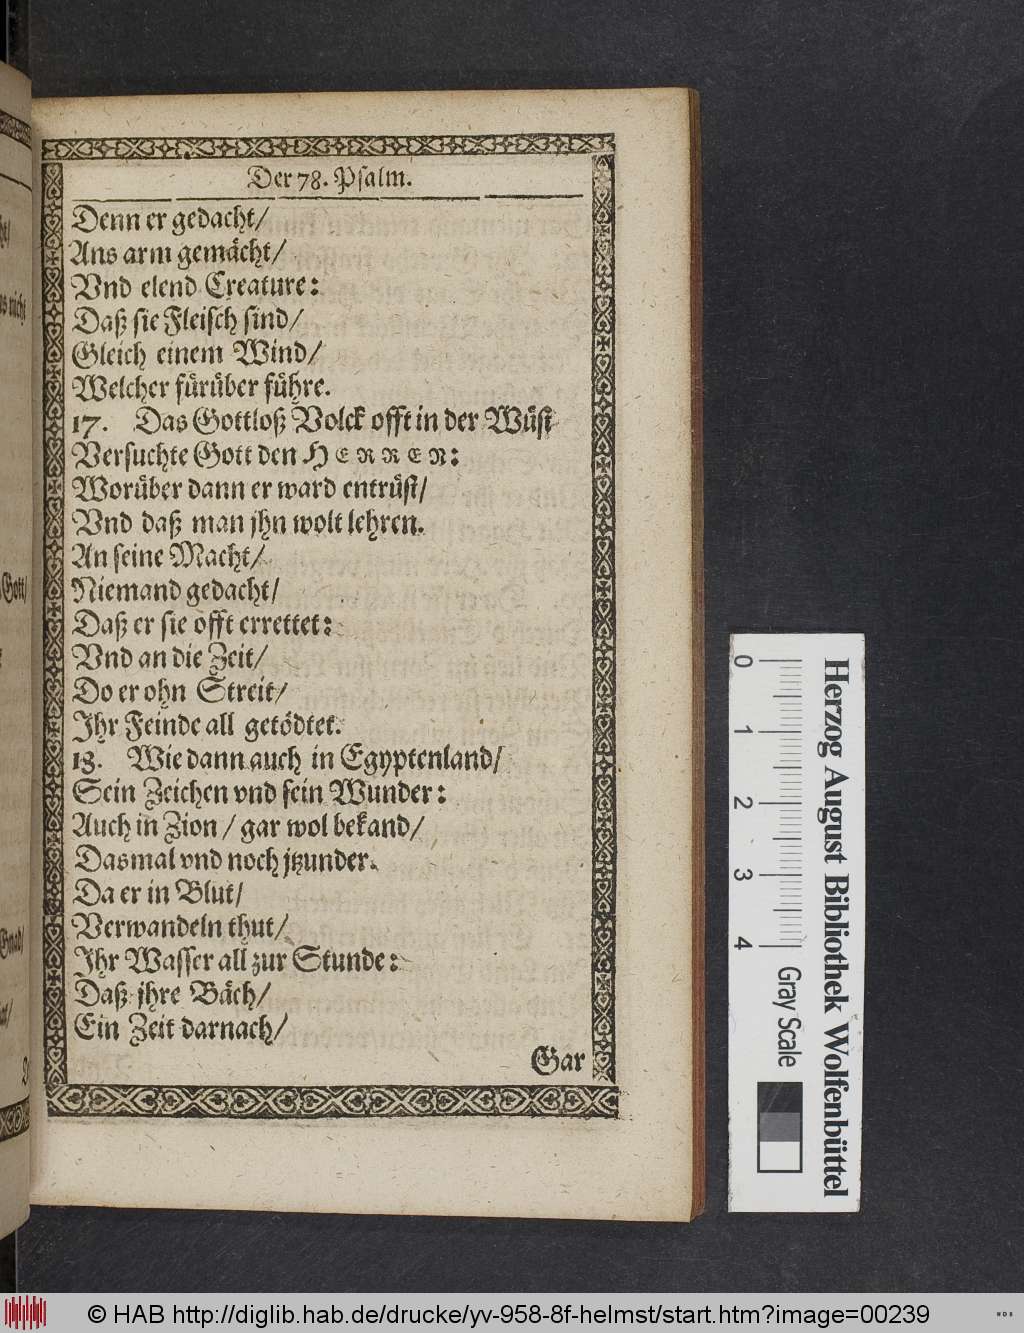 Der 78. Psalm.
Denn er gedacht/
Ans arm gemächt/
Vnd elend Creature:
Daß sie Fleisch sind/
Gleich einem Wind/
Welcher fürüber führe.
17. Das Gottloß Volck offt in der Wüst
Versuchte Gott den HERREN:
Worüber dann er ward entrüst/
Vnd daß man jhn wolt lehren.
An seine Macht/
Niemand gedacht/
Daß er sie offt errettet:
Vnd an die Zeit/
Do er ohn Streit/
Ihr Feinde all getödtet.
18. Wie dann auch in Egyptenland/
Sein Zeichen vnd sein Wunder:
Auch in Zion / gar wol bekand/
Dasmal vnd noch jtzunder.
Da er in Blut/
Verwandeln thut/
Ihr Wasser all zur Stunde:
Daß jhre Bäch/
Ein Zeit darnach/
Gar
Gott/
0 1 2 3 4
Gray Scale
Herzog August Bibliothek Wolfenbüttel
© HAB http://diglib.hab.de/drucke/yv-958-8f-helmst/start.htm?image=00239